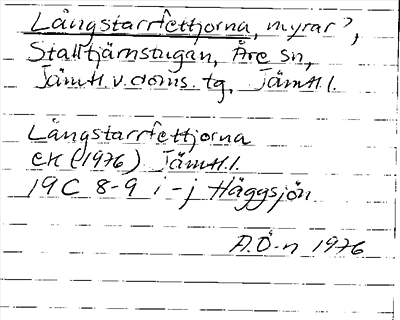 Långstarrfettjorna, myrar?,
Stalltjärnstugan, Åre sn,
Jämtl. v. doms. tg, Jämtl. l.
Långstarrfettjorna
ek (1976) Jämtl. l.
19C 8-9 i-j Häggsjön
A.Ö-n 1976